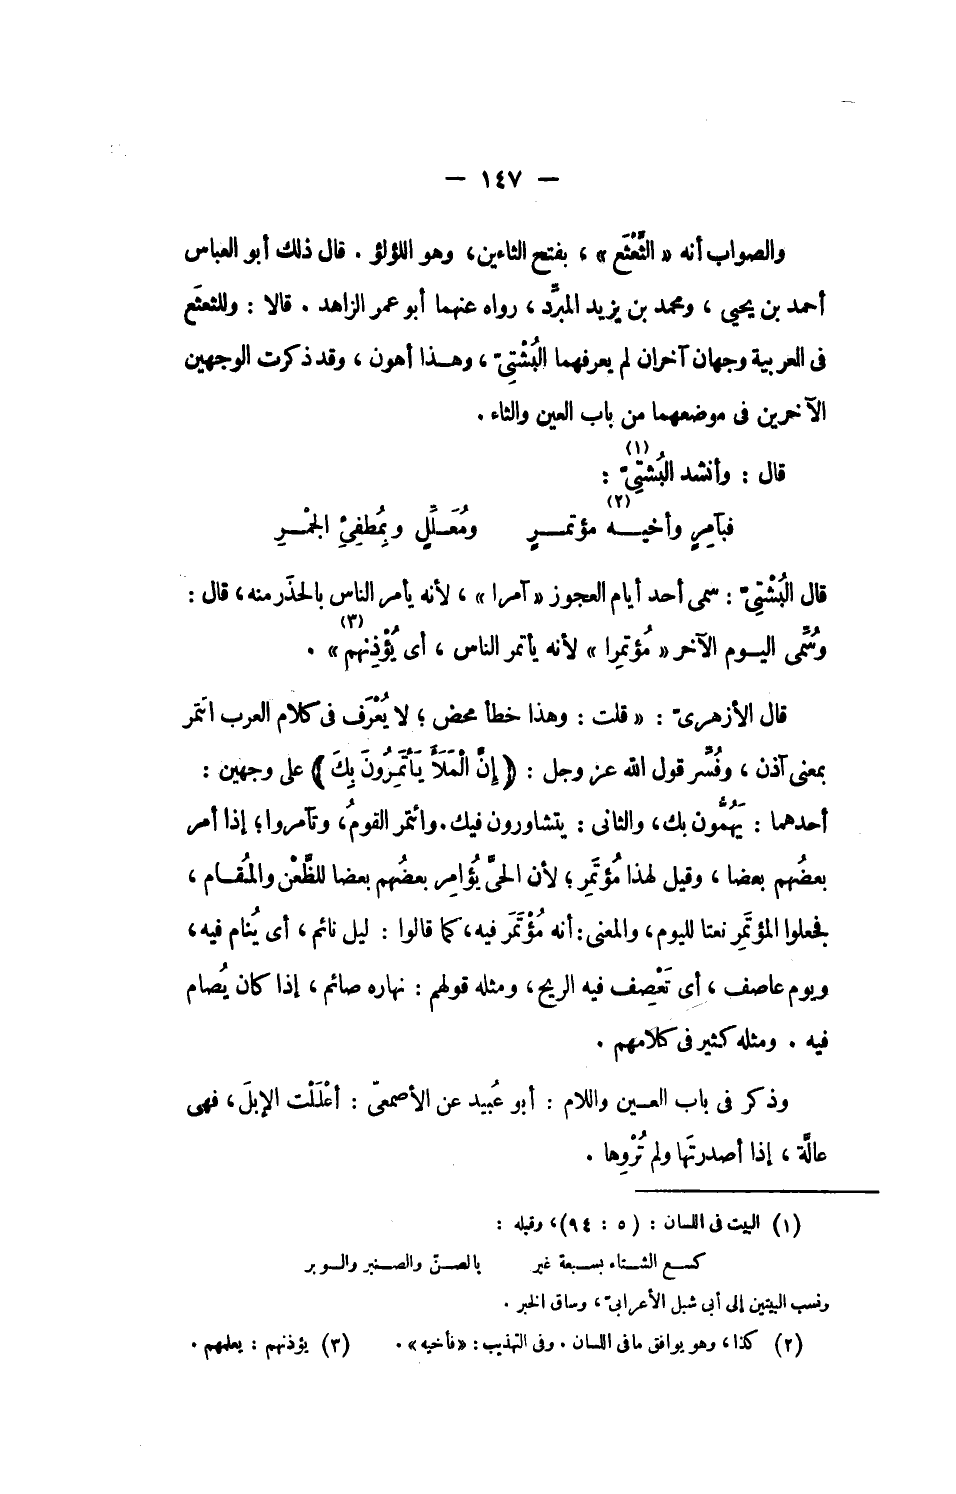 — ١٤٧ —
والصواب أنه « الثَّعْثَع » ، بفتح الثاءين، وهو اللؤلؤ . قال ذلك أبو العباس
أحمد بن يحيى ، ومحمد بن يزيد المبرّد ، رواه عنهما أبو عمر الزاهد . قالا : وللثعثَع
فى العربية وجهان آخران لم يعرفهما البُشْتِىّ ، وهــذا أهون ، وقد ذكرت الوجهين
الآخرين فى موضعهما من باب العين والثاء .
قال : وأنشد البُشتىّ (١) :
فبآمِرٍ وأخيـــه (٢) مؤتمــرٍ ومُعَــلِّلٍ وبمُطفِئِ الجَمْــرِ
قال البُشْتِىّ : سمى أحد أيام العجوز « آمرا » ، لأنه يأمر الناس بالحذَر منه، قال :
وسُمِّى اليــوم الآخر « مُؤتمِرا » لأنه يأتمر الناس ، أى يُؤْذِنهم (٣) » .
قال الأزهرىّ : « قلت : وهذا خطأ محض ؛ لا يُعْرَف فى كلام العرب ائتمر
بمعنى آذن ، وفُسِّر قول الله عز وجل : ﴿ إِنَّ الْمَلَأَ يَأْتَمِرُونَ بِكَ ﴾ على وجهين :
أحدهما : يَهُمُّون بك، والثانى : يتشاورون فيك. وائتمر القومُ، وتآمروا؛ إذا أمر
بعضُهم بعضا ، وقيل لهذا مُؤتَمِر ؛ لأن الحىَّ يُؤامِر بعضُهم بعضا للظَّعْن والمُقــام ،
فجعلوا المؤتَمِر نعتا لليوم، والمعنى : أنه مُؤْتَمَر فيه، كما قالوا : ليل نائم ، أى يُنام فيه،
ويوم عاصف ، أى تَعْصِف فيه الريح، ومثله قولهم : نهاره صائم ، إذا كان يُصام
فيه . ومثله كثير فى كلامهم .
وذكر فى باب العــين واللام : أبو عُبيد عن الأصمعىّ : أعْلَلْت الإبلَ، فهى
عالّة ، إذا أصدرتَها ولم تُرْوِها .
(١) البيت فى اللسان : ( ٥ : ٩٤)، وقبله :
كســع الشــتاء بســبعة غبر بالصــنّ والصــنبر والــوبر
ونسب البيتين إلى أبى شبل الأعرابىّ، وساق الخبر .
(٢) كذا، وهو يوافق ما فى اللسان . وفى التهذيب : «فأخيه» . (٣) يؤذنهم : يعلمهم .